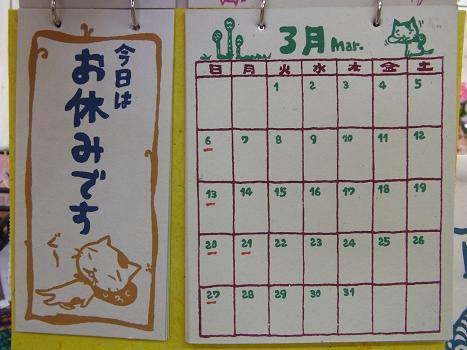 今日は
お休みです
ぐー
3月 Mar.
日 月 火 水 木 金 土
1 2 3 4 5
6 7 8 9 10 11 12
13 14 15 16 17 18 19
20 21 22 23 24 25 26
27 28 29 30 31